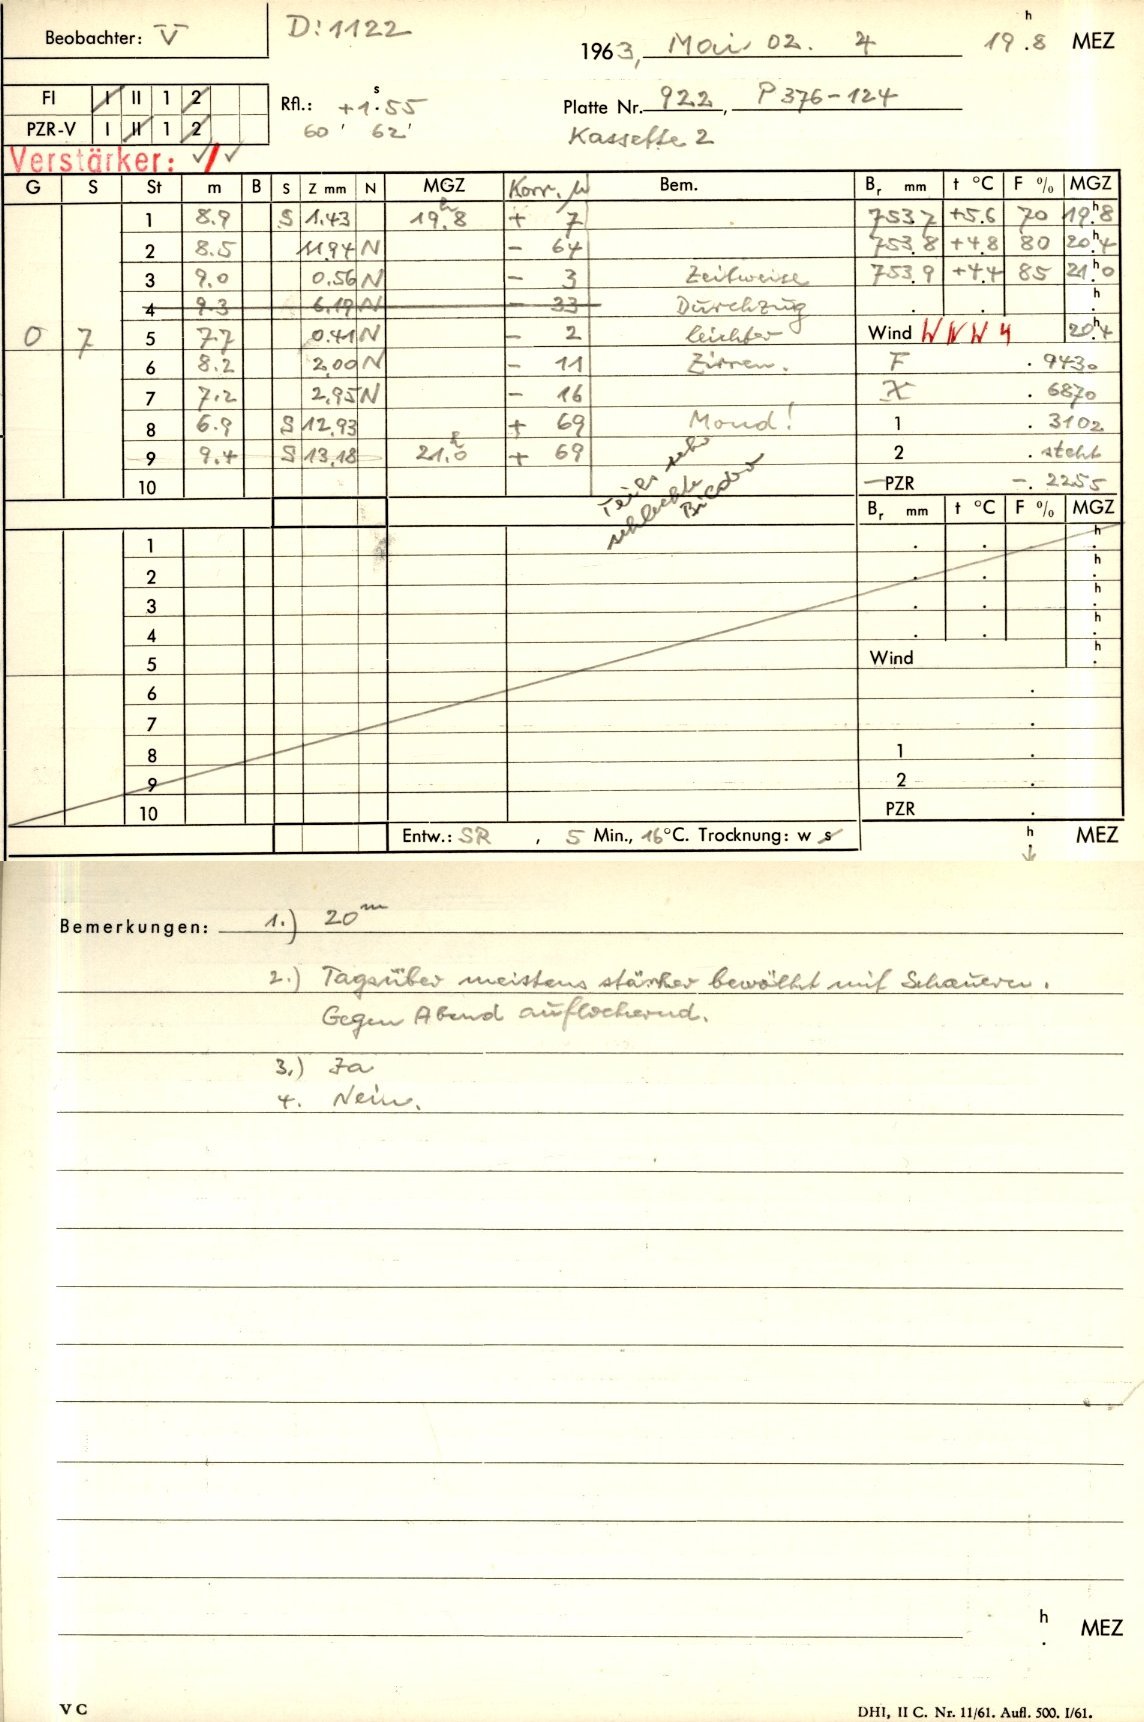 Beobachter: V D: 1122 1963, Mai 02. 4 19.h8 MEZ
FI I II 1 2
PZR-V I II 1 2
Rfl.: +1.s55
60' 62'
Platte Nr. 922, P 376-124
Kassette 2
Verstärker:
G S St m B S Z mm N MGZ Korr. µ Bem. Br mm t °C F % MGZ
1 8.9 S 1.43 19.h8 + 7 753.7 +5.6 70 19.h8
2 8.5 11.94 N - 64 753.8 +4.8 80 20.h4
3 9.0 0.56 N - 3 Zeitweise 753.9 +4.4 85 21.h0
4 9.3 6.19 N - 33 Durchzug . . h.
0 7 5 7.7 0.41 N - 2 leichter Wind WNW 4 20.h4
6 8.2 2.00 N - 11 Zirren. F . 9430
7 7.2 2.95 N - 16 X . 6870
8 6.9 S 12.93 + 69 Mond! 1 . 3102
9 9.4 S 13.18 21.h0 + 69 2 . steht
10 Teils sehr PZR -. 2255
schlechte
Br mm t °C F % MGZ
1 . . h.
2 . . h.
3 . . h.
4 . . h.
5 Wind h.
6 .
7 .
8 1 .
9 2 .
10 PZR .
Entw.: SR , 5 Min., 16°C. Trocknung: w s h. MEZ
Bemerkungen: 1.) 20m
2.) Tagsüber meistens stärker bewölkt mit Schauern.
Gegen Abend auflockernd.
3.) Ja
4. Nein.
h. MEZ
V C DHI, II C. Nr. 11/61. Aufl. 500. I/61.